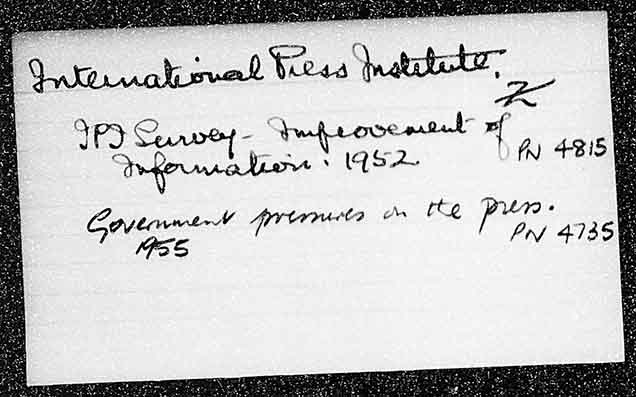 International Press Institute.
Z
IPI Survey - Improvement of
Information. 1952. PN 4815
Government pressures on the press.
1955 PN 4735